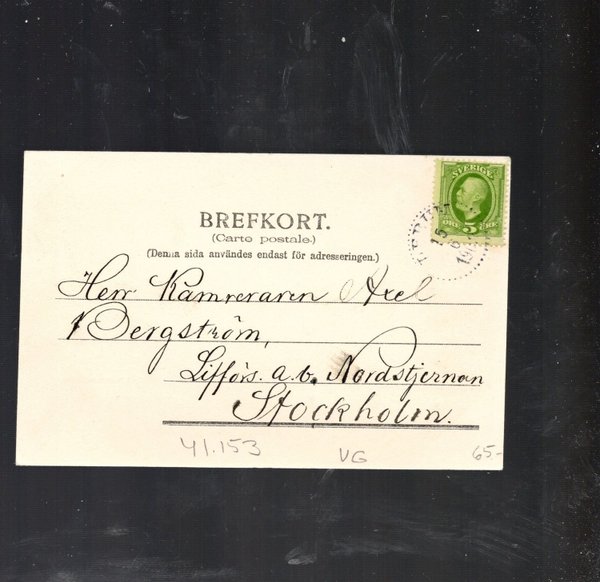 SVERIGE
5
ÖRE ÖRE
15
BREFKORT.
(Carte postale.)
(Denna sida användes endast för adresseringen.)
Herr Kamreraren Axel
Bergström,
Lifförs. a.b. Nordstjernan
Stockholm.
41.153
VG
65.-